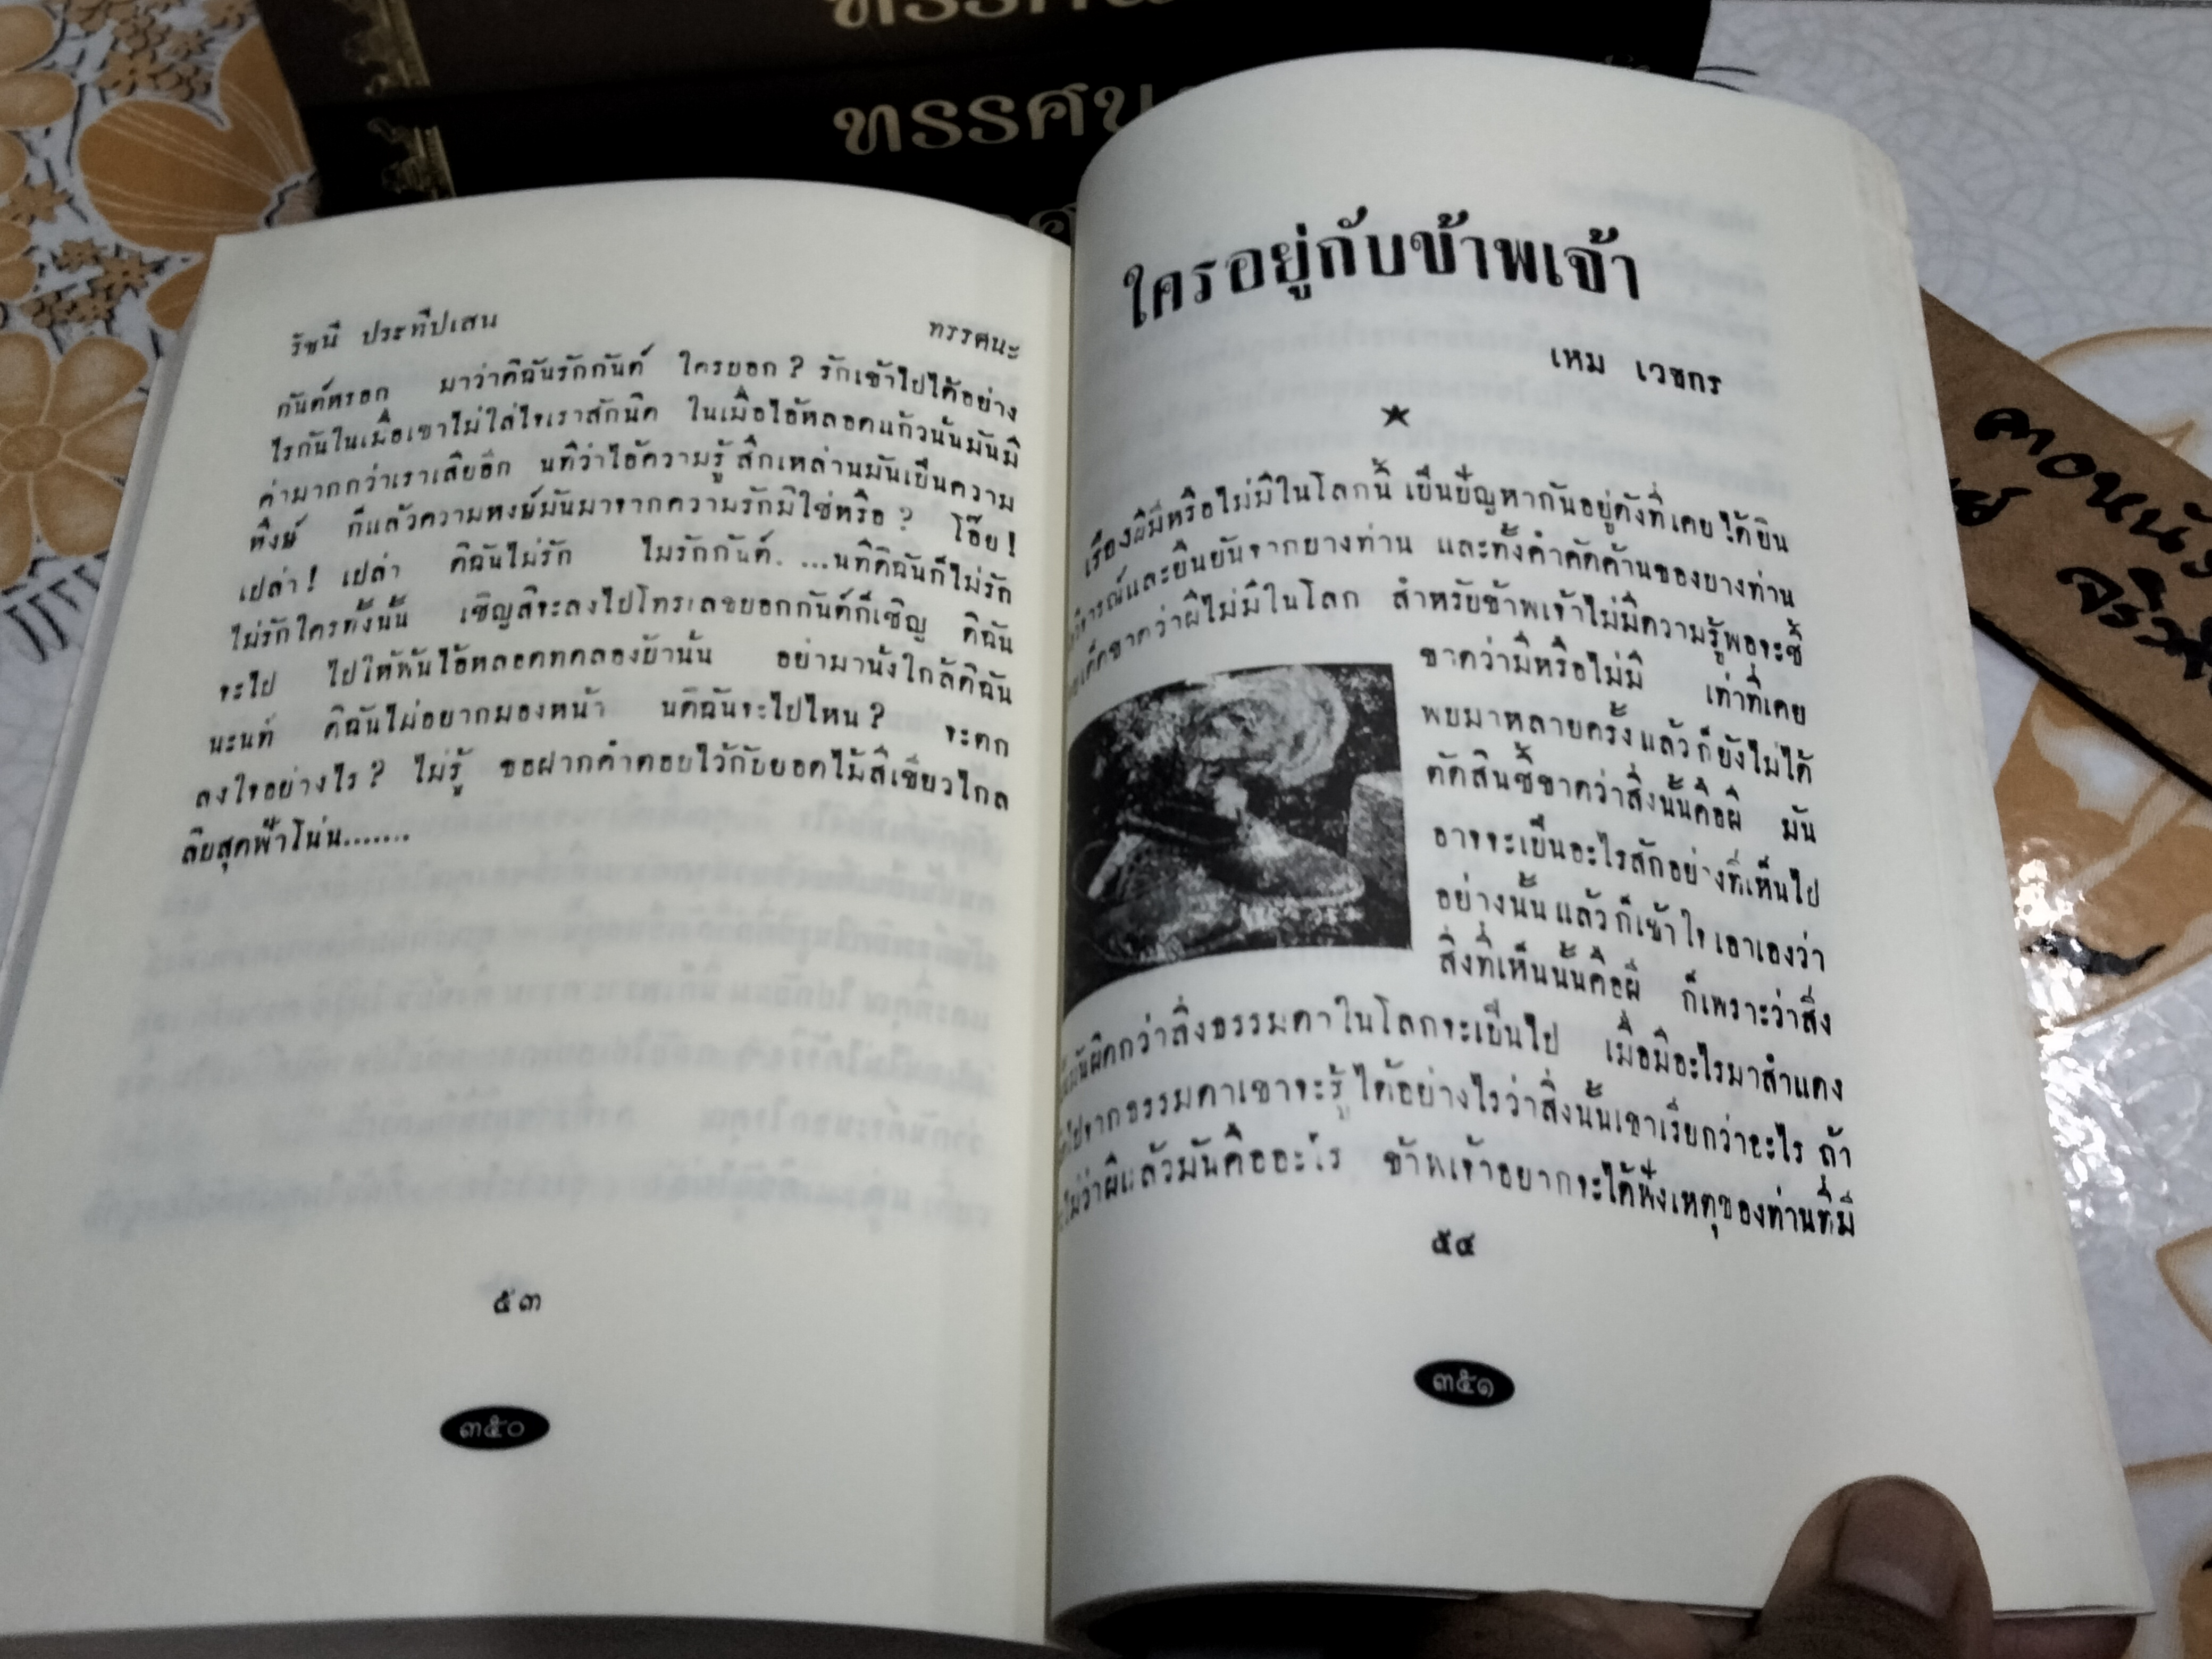 ทรรศน
รัชนี ประทีปเสน ทรรศนะ
กันต์หรอก มาว่าดิฉันรักกันต์ ใครบอก? รักเข้าไปได้อย่าง
ไรกันในเมื่อเขาไม่ใส่ใจเราสักนิด ในเมื่อไอ้หลอดแก้วนั่นมันมี
ค่ามากกว่าเราเสียอีก นทีว่าไอ้ความรู้สึกเหล่านี้มันเป็นความ
หึงษ์ ก็แล้วความหงษ์มันมาจากความรักมิใช่หรือ? โอ๊ย!
เปล่า! เปล่า ดิฉันไม่รัก ไม่รักกันต์. ...นทีดิฉันก็ไม่รัก
ไม่รักใครทั้งนั้น เชิญสิจะลงไปโทรเลขบอกกันต์ก็เชิญ ดิฉัน
จะไป ไปให้พ้นไอ้หลอดทดลองบ้านั้น อย่ามานั่งใกล้ดิฉัน
นะนที ดิฉันไม่อยากมองหน้า นดิฉันจะไปไหน? จะตก
ลงใจอย่างไร? ไม่รู้ ขอฝากคำตอบไว้กับยอดไม้สีเขียวไกล
ลิบสุดฟ้าโน่น.......
๕๓
๓๕๐
ใครอยู่กับข้าพเจ้า
เหม เวชกร
เรื่องผีมีหรือไม่มีในโลกนี้ เป็นปัญหากันอยู่ดังที่เคยได้ยิน
และยืนยันจากบางท่าน และทั้งคำคัดค้านของบางท่าน
ว่าผีไม่มีในโลก สำหรับข้าพเจ้าไม่มีความรู้พอจะชี้
ขาดว่ามีหรือไม่มี เท่าที่เคย
พบมาหลายครั้งแล้วก็ยังไม่ได้
ตัดสินชี้ขาดว่าสิ่งนั้นคือผี มัน
อาจจะเป็นอะไรสักอย่างที่เห็นไป
อย่างนั้นแล้วก็เข้าใจเอาเองว่า
สิ่งที่เห็นนั้นคือผี ก็เพราะว่าสิ่ง
มันผิดกว่าสิ่งธรรมดาในโลกจะเป็นไป เมื่อมีอะไรมาสำแดง
ไปจากธรรมดาเขาจะรู้ได้อย่างไรว่าสิ่งนั้นเขาเรียกว่าอะไร ถ้า
ไม่ว่าผีแล้วมันคืออะไร ข้าพเจ้าอยากจะได้ฟังเหตุของท่านที่มี
๕๔
๓๕๑